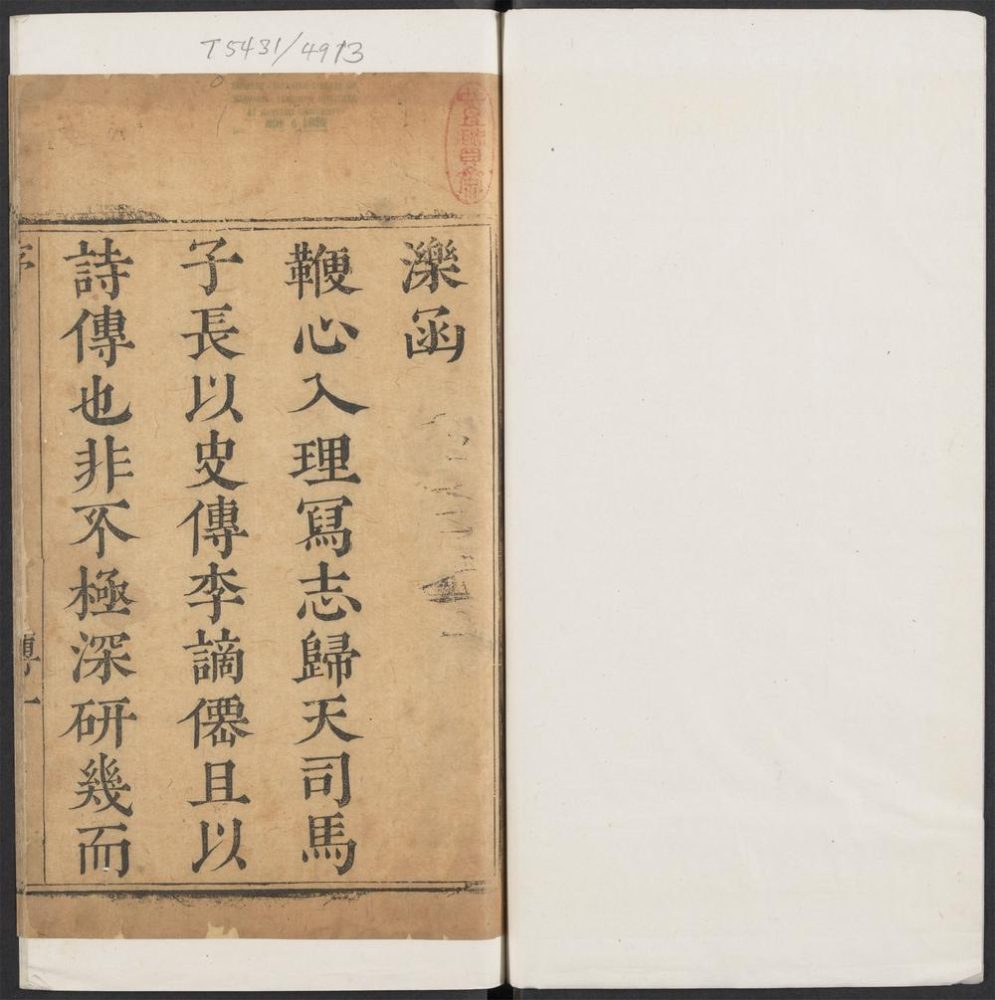 T5431/4913
濼函
鞭心入理寫志歸天司馬
子長以史傳李謫僊且以
詩傳也非不極深研幾而